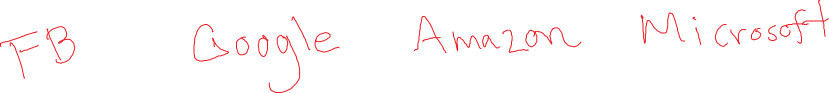 FB Google Amazon Microsoft